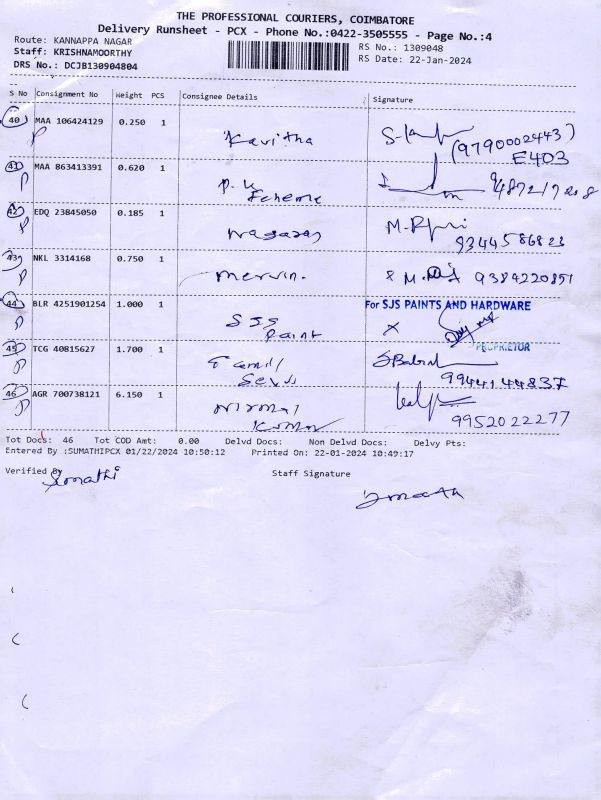 THE PROFESSIONAL COURIERS, COIMBATORE
Delivery Runsheet - PCX - Phone No.:0422-3505555 - Page No.:4
Route: KANNAPPA NAGAR
RS No.: 1309048
Staff: KRISHNAMOORTHY
RS Date: 22-Jan-2024
DRS No.: DCJB130904804
S No Consignment No Weight PCS Consignee Details Signature
40 MAA 106424129 0.250 1 Kavitha (9790002443)
P E403
41 MAA 863413391 0.620 1 P.K
P Scheme
42 EDQ 23845050 0.185 1 Nagaraj
P 9344586823
43 NKL 3314168 0.750 1 mervin. 9384220851
P
44 BLR 4251901254 1.000 1 SJS For SJS PAINTS AND HARDWARE
P Paint X
PROPRIETOR
45 TCG 40815627 1.700 1 Tamil
P Selvi 9944144837
46 AGR 700738121 6.150 1 Nirmal
P Kumar 9952022277
Tot Docs: 46 Tot COD Amt: 0.00 Delvd Docs: Non Delvd Docs: Delvy Pts:
Entered By :SUMATHIPCX 01/22/2024 10:50:12 Printed On: 22-01-2024 10:49:17
Verified By Staff Signature
Sumathi